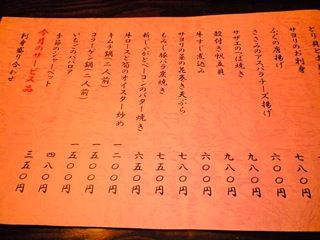 とり貝と
サヨリのお刺身
ふぐの唐揚げ
ささみのアスパラチーズ揚げ
サザエのつぼ焼き
殻付き帆立貝
牛すじ煮込み
サヨリの菜の花巻き天ぷら
もみじ豚バラ焼き
新じゃがとベーコンのバター焼き
牛ロースと筍のオイスター炒め
キムチ鍋(二人前)
コラーゲン鍋(二人前)
いちごのババロア
季節のシャーベット
今月のサービス品
刺身盛り合わせ
七八〇円
六〇〇円
九八〇円
九八〇円
六〇〇円
七八〇円
七五〇円
六五〇円
一二〇〇円
一五〇〇円
一五〇〇円
四八〇円
三五〇円